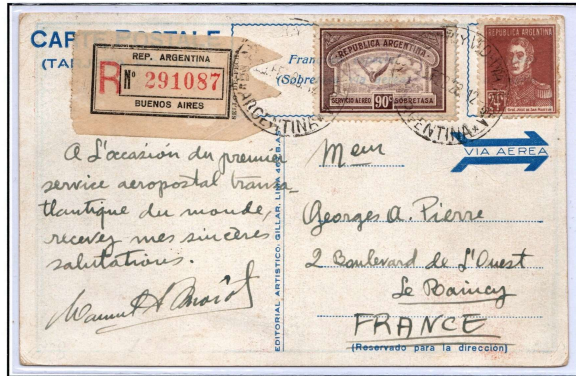 CARTE POSTALE
REP. ARGENTINA
R Nº 291087
BUENOS AIRES
REPUBLICA ARGENTINA
SERVICIO AEREO 90c SOBRETASA
REPUBLICA ARGENTINA
ARGENTINA
VIA AEREA
A L'occasion du premier
service aeropostal transa-
tlantique du monde,
recevez mes sincères
salutations.
EDITORIAL ARTISTICO, GILLAR, LIMA
Georges A. Pierre
2 Boulevard de L'Ouest
Le Raincy
FRANCE
(Reservado para la dirección)